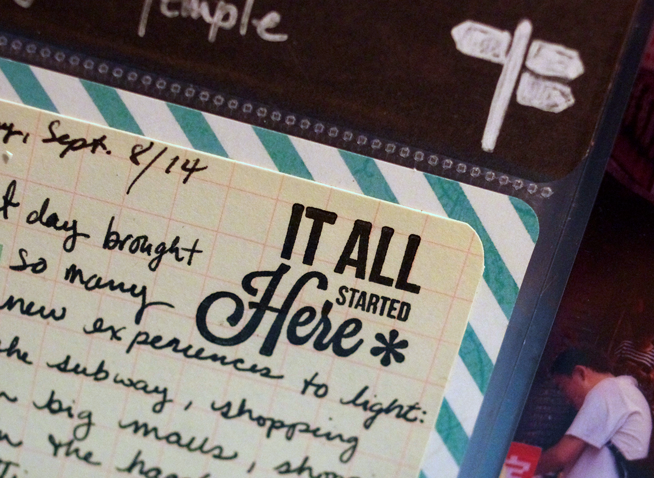 Temple
Sept. 8/14
day brought
so many
new experiences to light:
the subway, shopping
big malls, 
the
IT ALL
STARTED
Here*